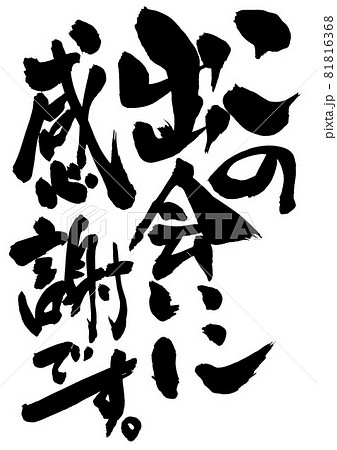 この
出会いに
感謝です。
PIXTA
pixta.jp - 81816368